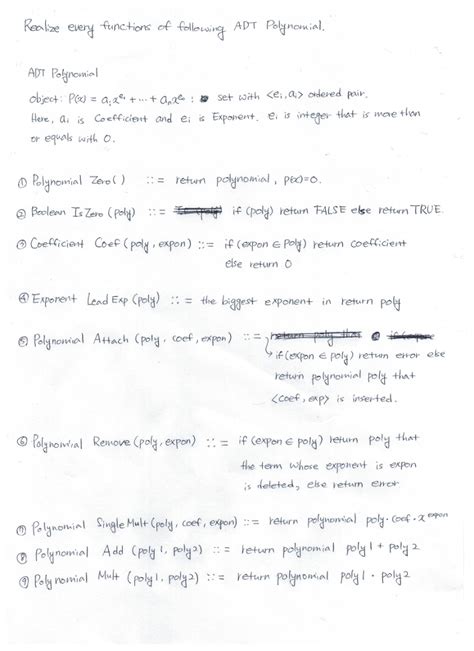 Realize every functions of following ADT Polynomial.
ADT Polynomial
object: P(x) = a₁x^e₁ + ⋯ + aₙx^eₙ : set with <eᵢ, aᵢ> ordered pair.
Here, aᵢ is Coefficient and eᵢ is Exponent. eᵢ is integer that is more than
or equals with 0.
① Polynomial Zero( ) ::= return polynomial, p(x)=0.
② Boolean IsZero (poly) ::= if (poly) return FALSE else return TRUE.
③ Coefficient Coef (poly, expon) ::= if (expon ∈ Poly) return coefficient
else return 0
④ Exponent Lead Exp (poly) ::= the biggest exponent in return poly
⑤ Polynomial Attach (poly, coef, expon) ::= return poly that if (expon
if (expon ∈ poly) return error else
return polynomial poly that
<coef, exp> is inserted.
⑥ Polynomial Remove (poly, expon) ::= if (expon ∈ poly) return poly that
the term whose exponent is expon
is deleted, else return error
⑦ Polynomial SingleMult (poly, coef, expon) ::= return polynomial poly · coef · x^expon
⑧ Polynomial Add (poly1, poly2) ::= return polynomial poly1 + poly2
⑨ Polynomial Mult (poly1, poly2) ::= return polynomial poly1 · poly2